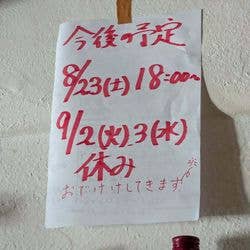 今後の予定
8/23(土) 18:00〜
9/2(火)3(水)
休み
おでけけしてきます